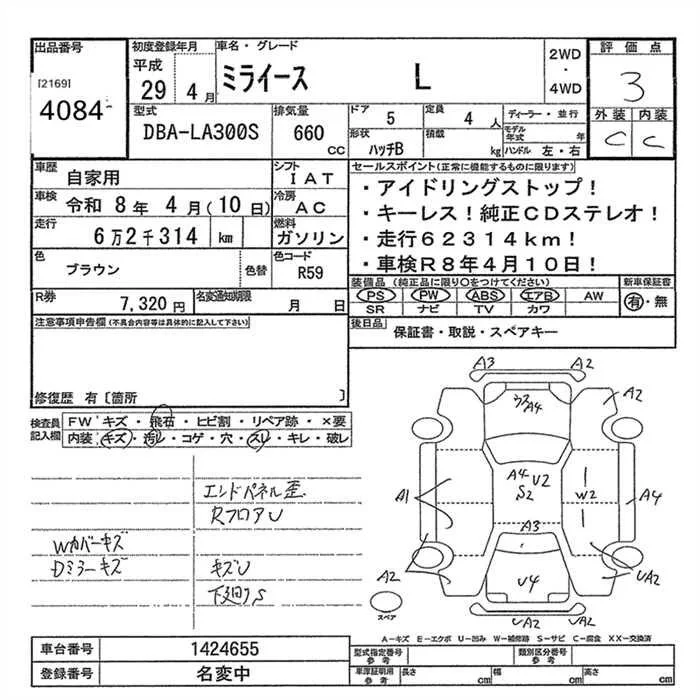 出品番号
[2169]
4084
初度登録年月
平成
29 4月
車名・グレード
ミライース L
2WD
・
4WD
評価点
3
外装 内装
C C
型式
DBA-LA300S
排気量
660
CC
ドア 5
定員 4 人
形状 ハッチB
積載 kg
ディーラー・並行
モデル年式 年
ハンドル 左・右
車歴
自家用
シフト
IAT
車検 令和 8年 4月(10日)
冷房
AC
走行
6万2千314 km
燃料
ガソリン
色
ブラウン
色替
色コード
R59
R券
7,320円
名変通知期限
月 日
セールスポイント(正常に機能するものに限ります)
・アイドリングストップ!
・キーレス!純正CDステレオ!
・走行62314km!
・車検R8年4月10日!
装備品 (純正品に限り○をつけてください)
PS PW ABS エアB AW
SR ナビ TV カワ
新車保証書
有・無
後日品
保証書・取説・スペアキー
注意事項申告欄(不具合内容等は具体的に記入して下さい)
修復歴 有〔箇所 〕
検査員
記入欄
FW キズ・飛石・ヒビ割・リペア跡・×要
内装 キズ・汚レ・コゲ・穴・スレ・キレ・破レ
エンドパネル歪
RフロアU
Wカバーキズ
Dミラーキズ
キズU
下廻りS
A3 A2
A4
A2
A4 U2
S2
A1
W2
A4
A3
A2
U4
UA2
UA2 UA2
スペア
A−キズ E−エクボ U−凹み W−補修跡 S−サビ C−腐食 XX−交換済
車台番号
1424655
登録番号
名変中
型式指定番号
参考
類別区分番号
参考
車庫証明用
参考
長さ cm
幅 cm
高さ cm